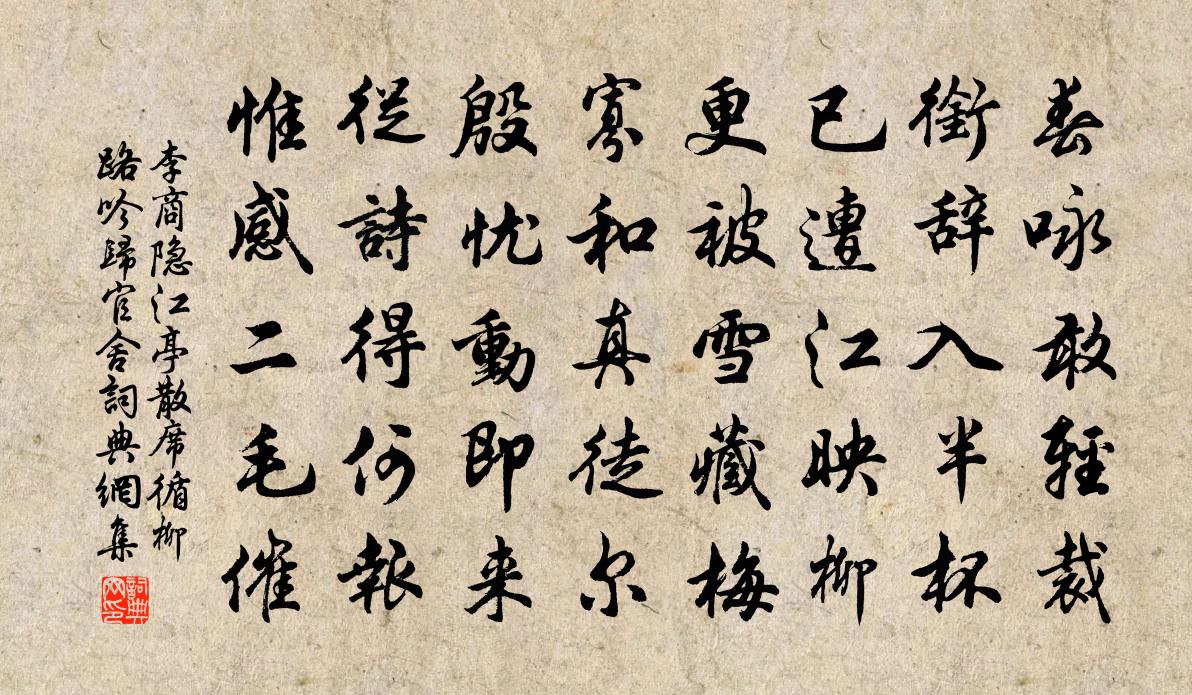 春咏敢輕裁
銜辞入半杯
已遭江映柳
更被雪藏梅
寡和真徒尔
殷忧動即来
從詩得何報
惟感二毛催
李商隐江亭散席循柳
路吟歸官舍詞典網集
詞典
网印